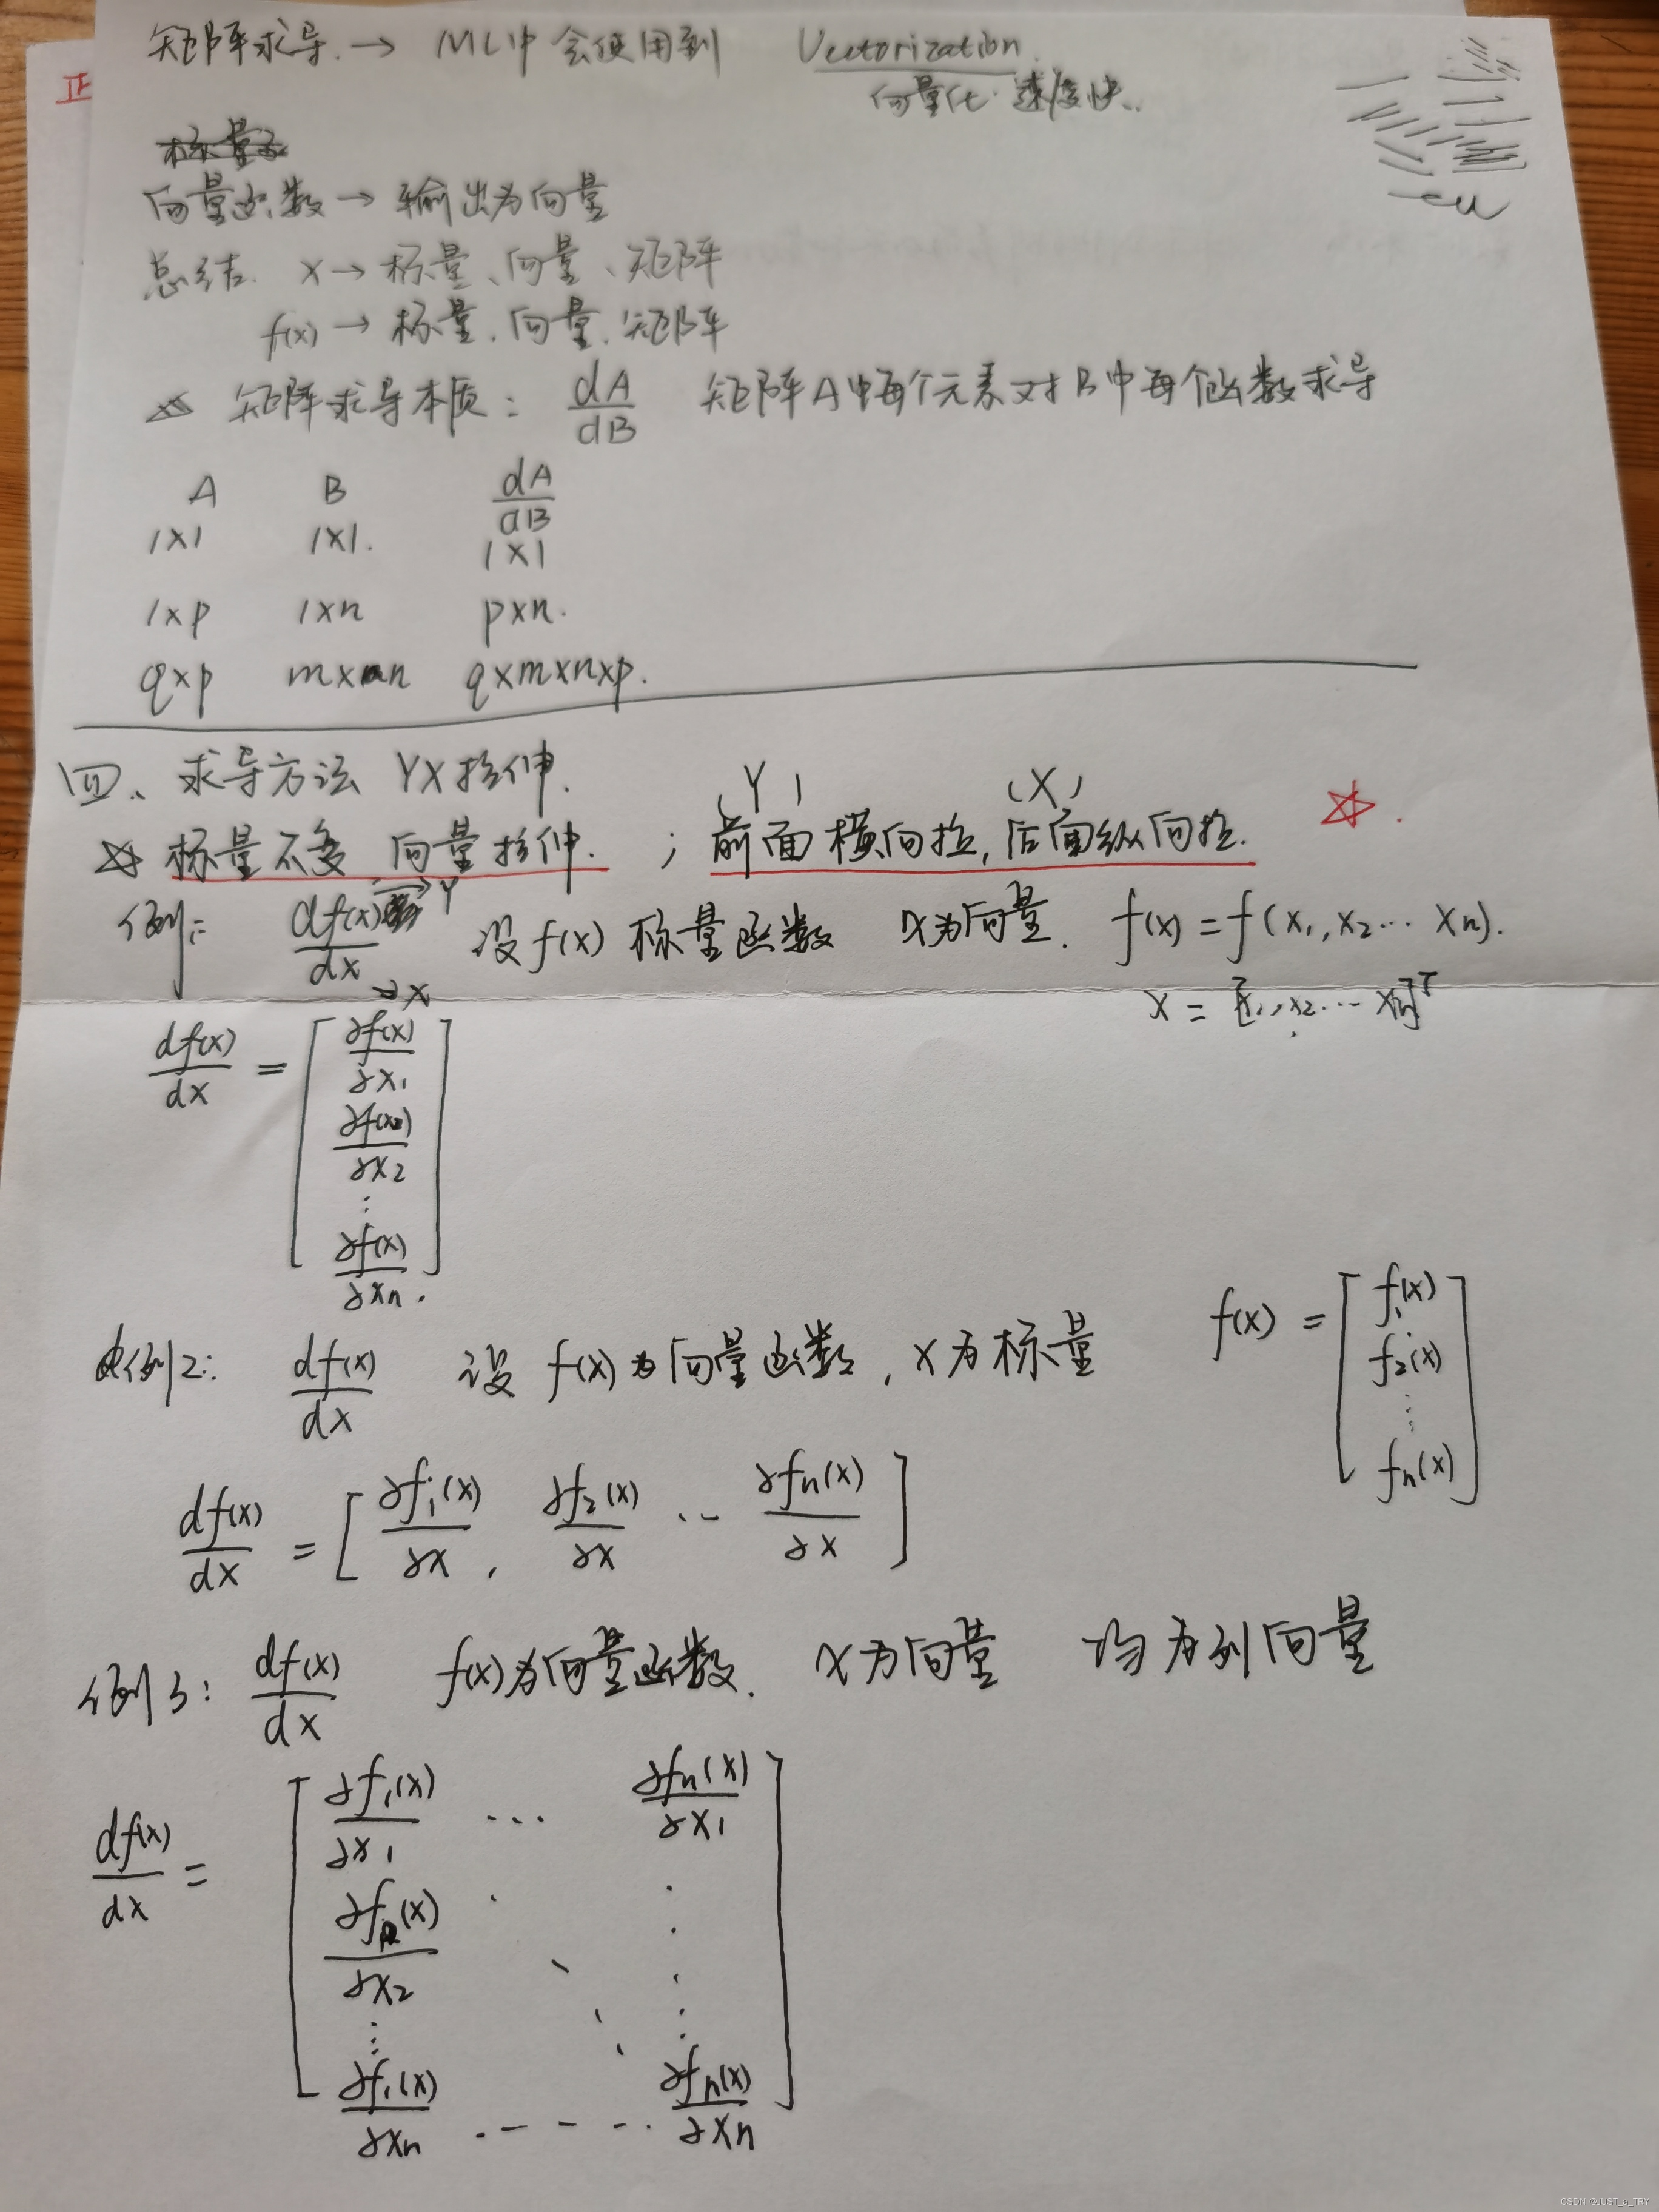 矩阵求导. → ML中会使用到 Vectorization.
向量化. 速度快..
向量函数 → 输出为向量
总结. X → 标量、向量、矩阵
f(x) → 标量. 向量. 矩阵
☆ 矩阵求导本质: dA/dB 矩阵A中每个元素对B中每个函数求导
A B dA/dB
1×1 1×1. 1×1
1×p 1×n p×n.
q×p m×n q×m×n×p.
四、求导方法 YX拉伸.
(Y) (X)
☆ 标量不变 向量拉伸. ; 前面横向拉, 后面纵向拉. ☆.
例: df(x)/dx → Y → X 设f(x)标量函数 X为向量. f(x) = f(x₁, x₂ ... xn).
X = [x₁, x₂ ... xn]ᵀ
df(x)/dx = [ ∂f(x)/∂x₁
∂f(x)/∂x₂
⋮
∂f(x)/∂xn. ]
例2: df(x)/dx 设 f(x)为向量函数, X为标量 f(x) = [ f₁(x)
f₂(x)
⋮
fn(x) ]
df(x)/dx = [ ∂f₁(x)/∂x , ∂f₂(x)/∂x ... ∂fn(x)/∂x ]
例3: df(x)/dx f(x)为向量函数. X为向量 均为列向量
df(x)/dx = [ ∂f₁(x)/∂x₁ ... ∂fn(x)/∂x₁
∂f (x)/∂x₂
⋮
∂f₁(x)/∂xn ..... ∂fn(x)/∂xn ]
正
CSDN @JUST_a_TRY